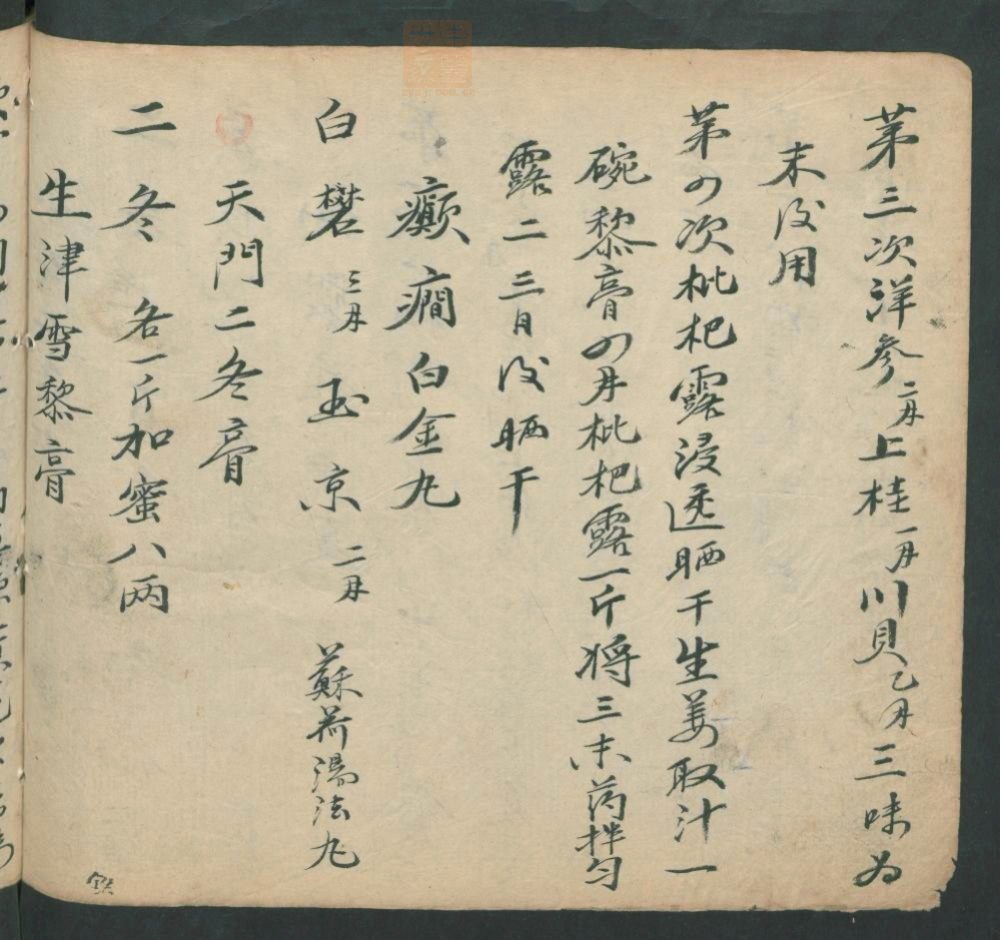 第三次洋參二月上桂一月川貝乙月三味为
末後用
第四次枇杷露浸透晒干生姜取汁一
碗黎膏四月枇杷露一斤將三末药拌匀
露二三日後晒干
癲癎白金丸
白礬 三月 玉京 二月 蘇荷湯法丸
天門二冬膏
二冬 各一斤加蜜八两
生津雪黎膏